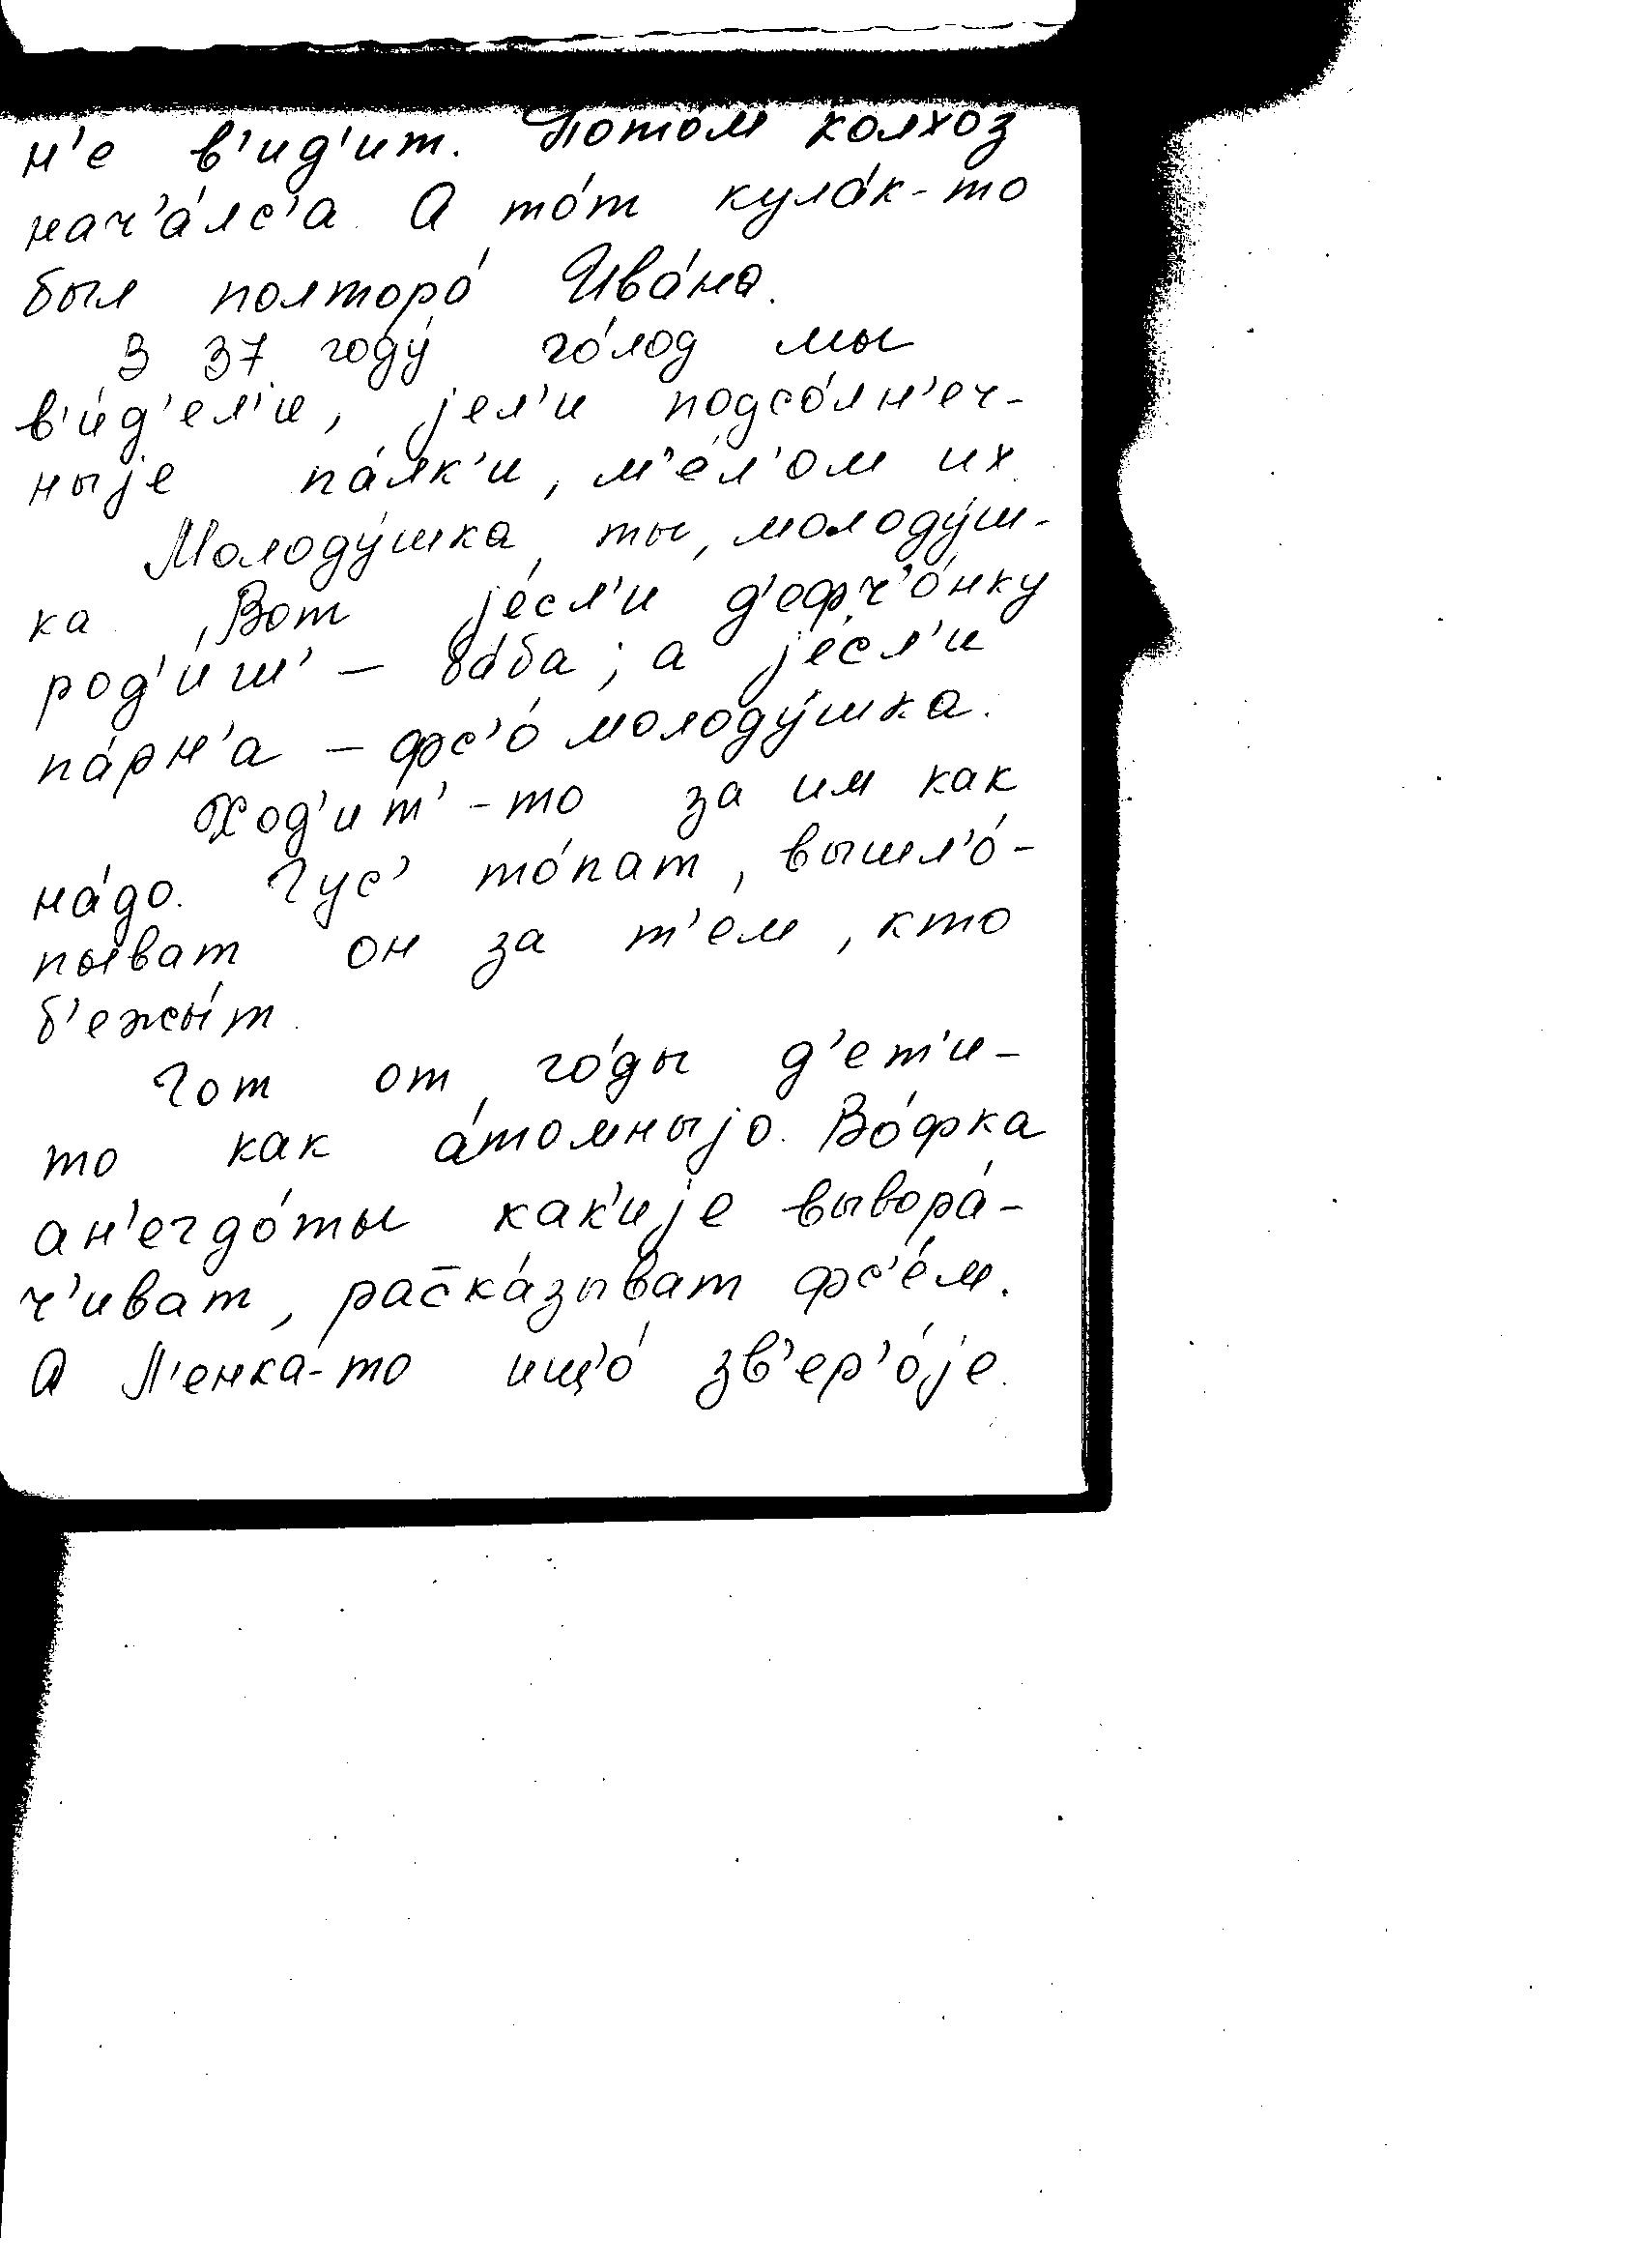 н'е в'ид'ит. Пото́м колхо́з
нач'а́лс'а. А то́т кула́к-то
был полтора́ Ива́на.
В 37 году́ го́лод мы
в'и́д'ел'и, јел'и подсо́лн'еч-
ныје па́лк'и, м'е́л'ом их.
Молоду́шка, ты, молоду́ш-
ка. Вот је́сл'и д'ефч'о́нку
род'и́ш' – ба́ба; а је́сл'и
па́рн'а – фс'о́ молоду́шка.
Ход'ит'-то за им как
на́до. Гус' то́пат, вышл'о́-
пыват он за т'ем, кто
б'ежы́т.
Гот от го́ды д'ет'и-
то как а́томныјо. Во́фка
ан'егдо́ты как'ије вывора́-
ч'иват, рас̄ка́зыват фс'е́м.
А Л'енка́-то ищ'о́ зв'ер'о́је.